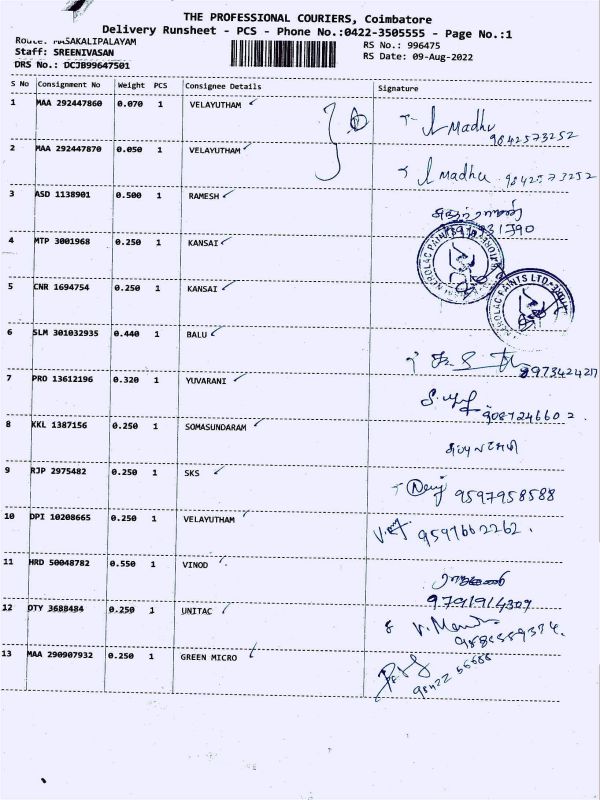 THE PROFESSIONAL COURIERS, Coimbatore
Delivery Runsheet - PCS - Phone No.:0422-3505555 - Page No.:1
Route: MASAKALIPALAYAM
Staff: SREENIVASAN
DRS No.: DCJB99647501
RS No.: 996475
RS Date: 09-Aug-2022
S No Consignment No Weight PCS Consignee Details Signature
1 MAA 292447860 0.070 1 VELAYUTHAM Madhu 9842573252
2 MAA 292447870 0.050 1 VELAYUTHAM Madhu 9842573252
3 ASD 1138901 0.500 1 RAMESH
4 MTP 3001968 0.250 1 KANSAI NEROLAC PAINTS
5 CNR 1694754 0.250 1 KANSAI NEROLAC PAINTS LTD
6 SLM 301032935 0.440 1 BALU
7 PRO 13612196 0.320 1 YUVARANI
8 KKL 1387156 0.250 1 SOMASUNDARAM
9 RJP 2975482 0.250 1 SKS 9597958588
10 DPI 10208665 0.250 1 VELAYUTHAM
11 HRD 50048782 0.550 1 VINOD 9791914309
12 OTY 3688484 0.250 1 UNITAC
13 MAA 290907932 0.250 1 GREEN MICRO